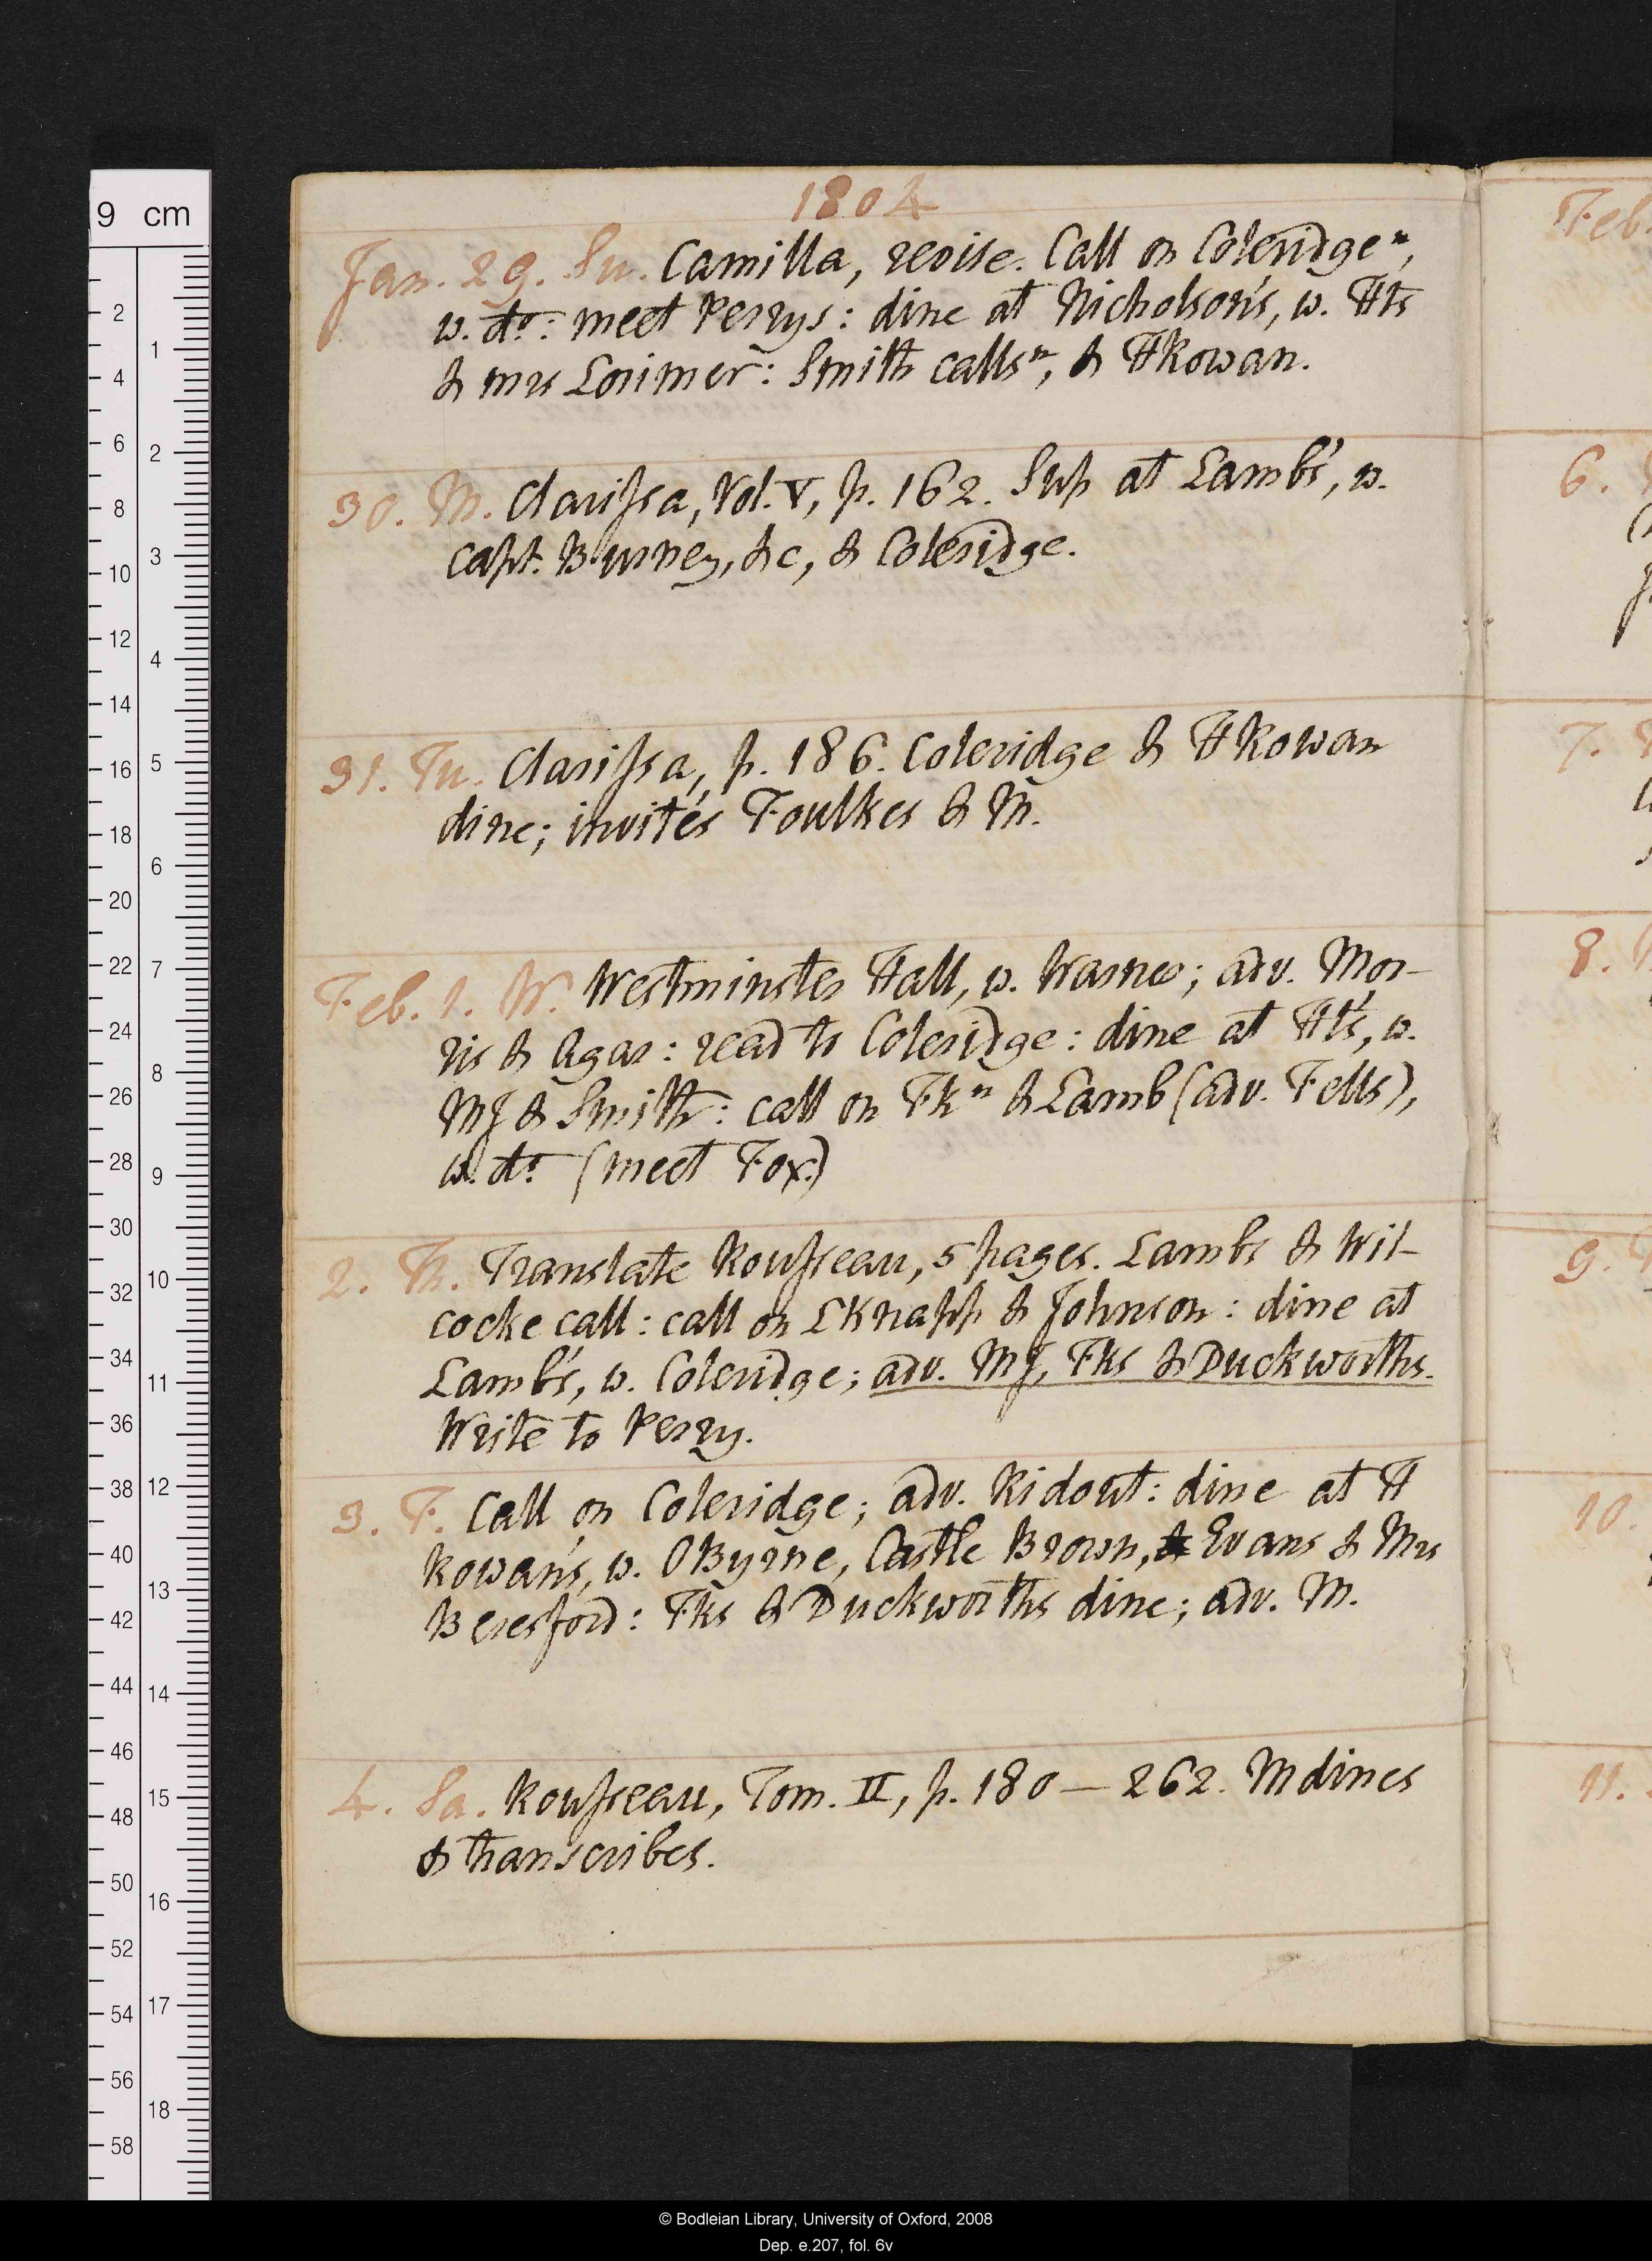 1804
Jan. 29. Su. Camilla, revise. Call on Coleridgeⁿ,
w. d°: meet Perrys: dine at Nicholson's, w. Hts
& mrs Lorimer: Smith callsⁿ, & HRowan.
30. M. Clarissa, Vol. V, p. 162. Sup at Lamb's, w.
Capt. Burney, &c, & Coleridge.
31. Tu. Clarissa, p. 186. Coleridge & HRowan
dine; invités Foulkes & M.
Feb. 1. W. Westminster Hall, w. Warner; adv. Mor-
ris & Agar: read to Coleridge: dine at Ht's, w.
MJ & Smith: call on Fkⁿ & Lamb (adv. Fells),
w. d° (meet Fox.)
2. Th. Translate Rousseau, 5 pages. Lambs & Wil-
cocke call: call on LKnapp & Johnson: dine at
Lamb's, w. Coleridge; adv. MJ, Fks & Duckworths.
Write to Perry.
3. F. Call on Coleridge; adv. Ridout: dine at H
Rowan's, w. OByrne, Castle Brown, Evans & Mrs
Beresford: Fks & Duckworths dine; adv. M.
4. Sa. Rousseau, Tom. II, p. 180 — 262. M dines
& transcribes.
Feb.
6.
7.
8.
9.
10.
11.
9 cm
2
4
6
8
10
12
14
16
18
20
22
24
26
28
30
32
34
36
38
40
42
44
46
48
50
52
54
56
58
1
2
3
4
5
6
7
8
9
10
11
12
13
14
15
16
17
18
© Bodleian Library, University of Oxford, 2008
Dep. e.207, fol. 6v